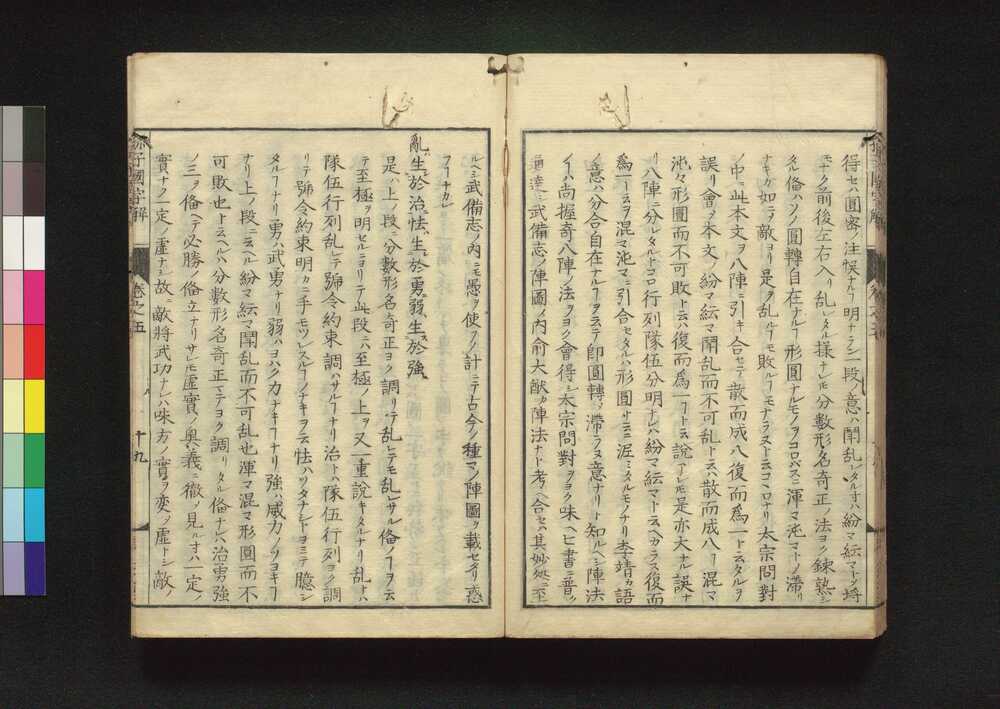 得セハ圓密ノ注悞ナルヿ明ナラン一段ノ意ハ閙乱シタルオハ紛マ紜マトシ埒
モナク前後左右入リ乱レタル様ナレモ分數形名奇正ノ法ヨク錬熟シ
タル備ハソノ圓轉自在ナルヿ形圓ナルモノヲコロバスニ渾マ沌マトノ滞リ
ナキカ如ニノ敵ヨリ是ヲ乱ルヿモ敗ルヿモナラヌト云コヽロナリ太宗問對
ノ中ニ此本文ヲ八陣ニ引キ合セテ散而成八復而為一ト云タルヲ
誤リ會ノ本文ノ紛マ紜マ閙乱而不可乱トハ散而成八ヿ混マ
沌々形圓而不可敗トハ復而為一ヿト云説アレモ是亦大ナル誤ナ
リ八陣ニ分レタルトコロ行列隊伍分明ナレハ紛マ紜マト云ヘカラス復而
為一ト云ヲ混マ沌マニ引合セタルハ形圓ト云ニ泥ミタルモノナリ李靖カ語
ノ意ハ分合自在ナルヿヲ云テ即圓轉ノ滞ラヌ意ナリト知ルヘシ陣法
ノイハ尚握奇八陣ノ法ヲヨク會得シ太宗問對ヲヨク味ヘヒ書ニ晋ク
通達シ武備志ノ陣圖ノ内俞大猷カ陣法ナト考ヘ合セハ其妙処ニ至
ルヘシ武備志ノ内ニモ愚ヲ使フノ計ニテ古今ノ種マノ陣圖ヲ載セタリ惑
フヿナカレ
亂生於治怯生於勇弱生於強
是ハ上ノ段ニ分數形名奇正ヨク調リテ乱レテモ乱レサル備ノヿヲ云
テ至極ヲ明セルニヨリテ此段ニハ至極ノ上ヲ又一重說キタルナリ乱トハ
隊伍行列乱レテ號令約束調ハサルヿナリ治トハ隊伍行列ヨク調
リテ號令約束明カニ手モツレスルヿノナキヲ云怯ハツタナシトヨミテ臆シ
タルヿナリ勇ハ武勇ナリ弱ハヨハク力ナキヿナリ強ハ威力ノツヨキヿ
ナリ上ノ段ニ云ル紛マ紜マ閙乱而不可乱也渾マ混マ形圓而不
可敗也ト云ヘルハ分數形名奇正マテヨク調リタル備ナレハ治勇強
ノ三ヲ備ヘテ必勝ノ備立ナリサレモ虚實ノ奥義ニ徹ノ見ルオハ一定ノ
實ナク一定ノ虚ナシ故ニ敵將武功ナレハ味方ノ實ヲ変ノ虚トシ敵ノ
孫子國字解
卷之五
十九